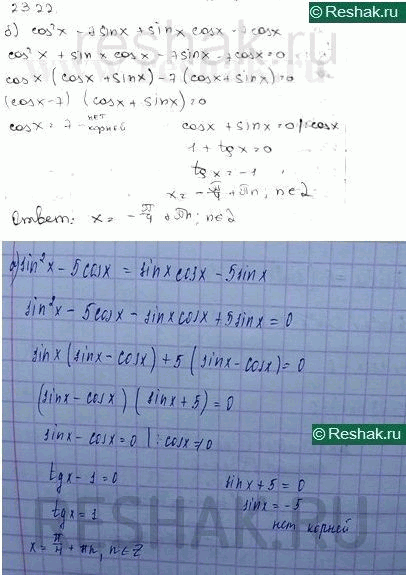 © Reshak.ru
23.22.
б) cos²x - 7sinx + sinx cosx - 7cosx
cos²x + sinx cosx - 7sinx - 7cosx = 0
cosx (cosx + sinx) - 7 (cosx + sinx) = 0
(cosx - 7) (cosx + sinx) = 0
cosx = 7 - нет корней cosx + sinx = 0 | cosx
1 + tgx = 0
tgx = -1
x = -π/4 + πn, n∈Z
Ответ: x = -π/4 + πn, n∈Z
а) sin²x - 5cosx = sinx cosx - 5sinx
sin²x - 5cosx - sinx cosx + 5sinx = 0
sinx (sinx - cosx) + 5 (sinx - cosx) = 0
(sinx - cosx) (sinx + 5) = 0
© Reshak.ru
sinx - cosx = 0 | : cosx ≠ 0
tgx - 1 = 0 sinx + 5 = 0
tgx = 1 sinx = -5
нет корней
RESHAK.RU
x = π/4 + πn, n∈Z